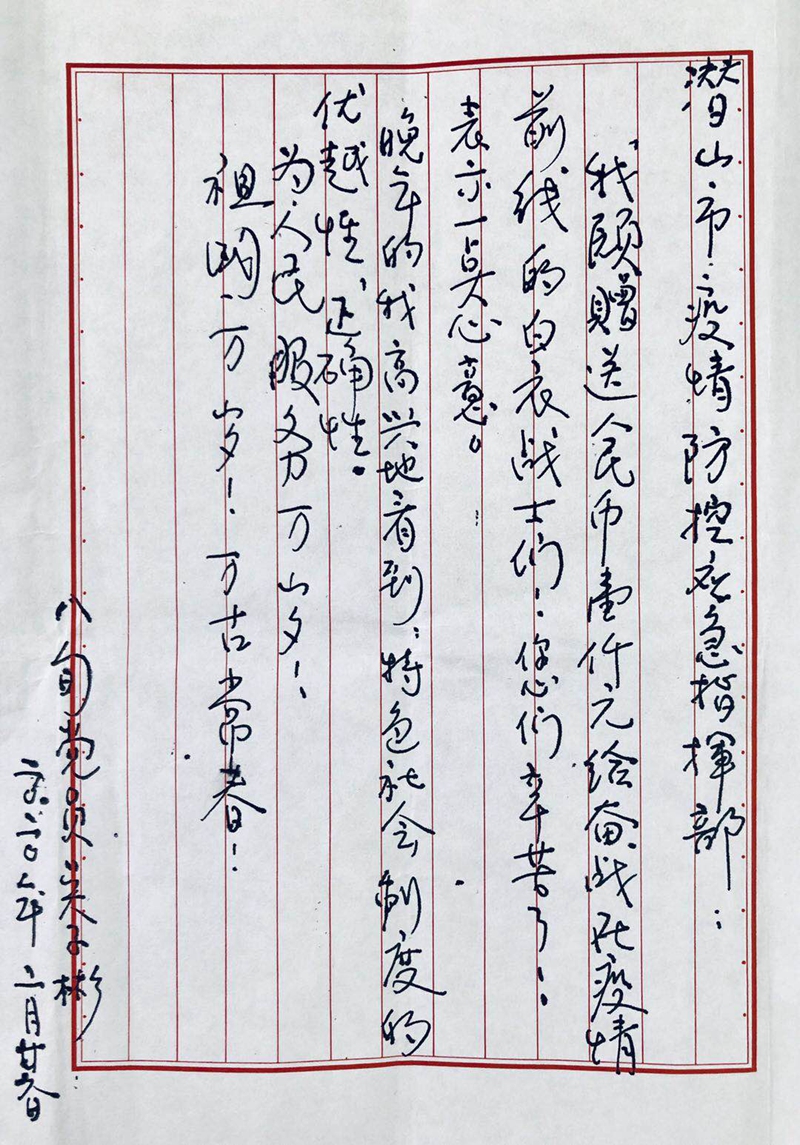 潜山市疫情防控应急指挥部：
我願赠送人民币壹仟元给奋战在疫情
前线的白衣战士们：您们辛苦了！
表示一点心意。
晚年的我高兴地看到：特色社会制度的
优越性，正确性。
为人民服务万岁！
祖国万岁！万古常春！
八旬党员吴子彬
二〇二〇年二月廿六日